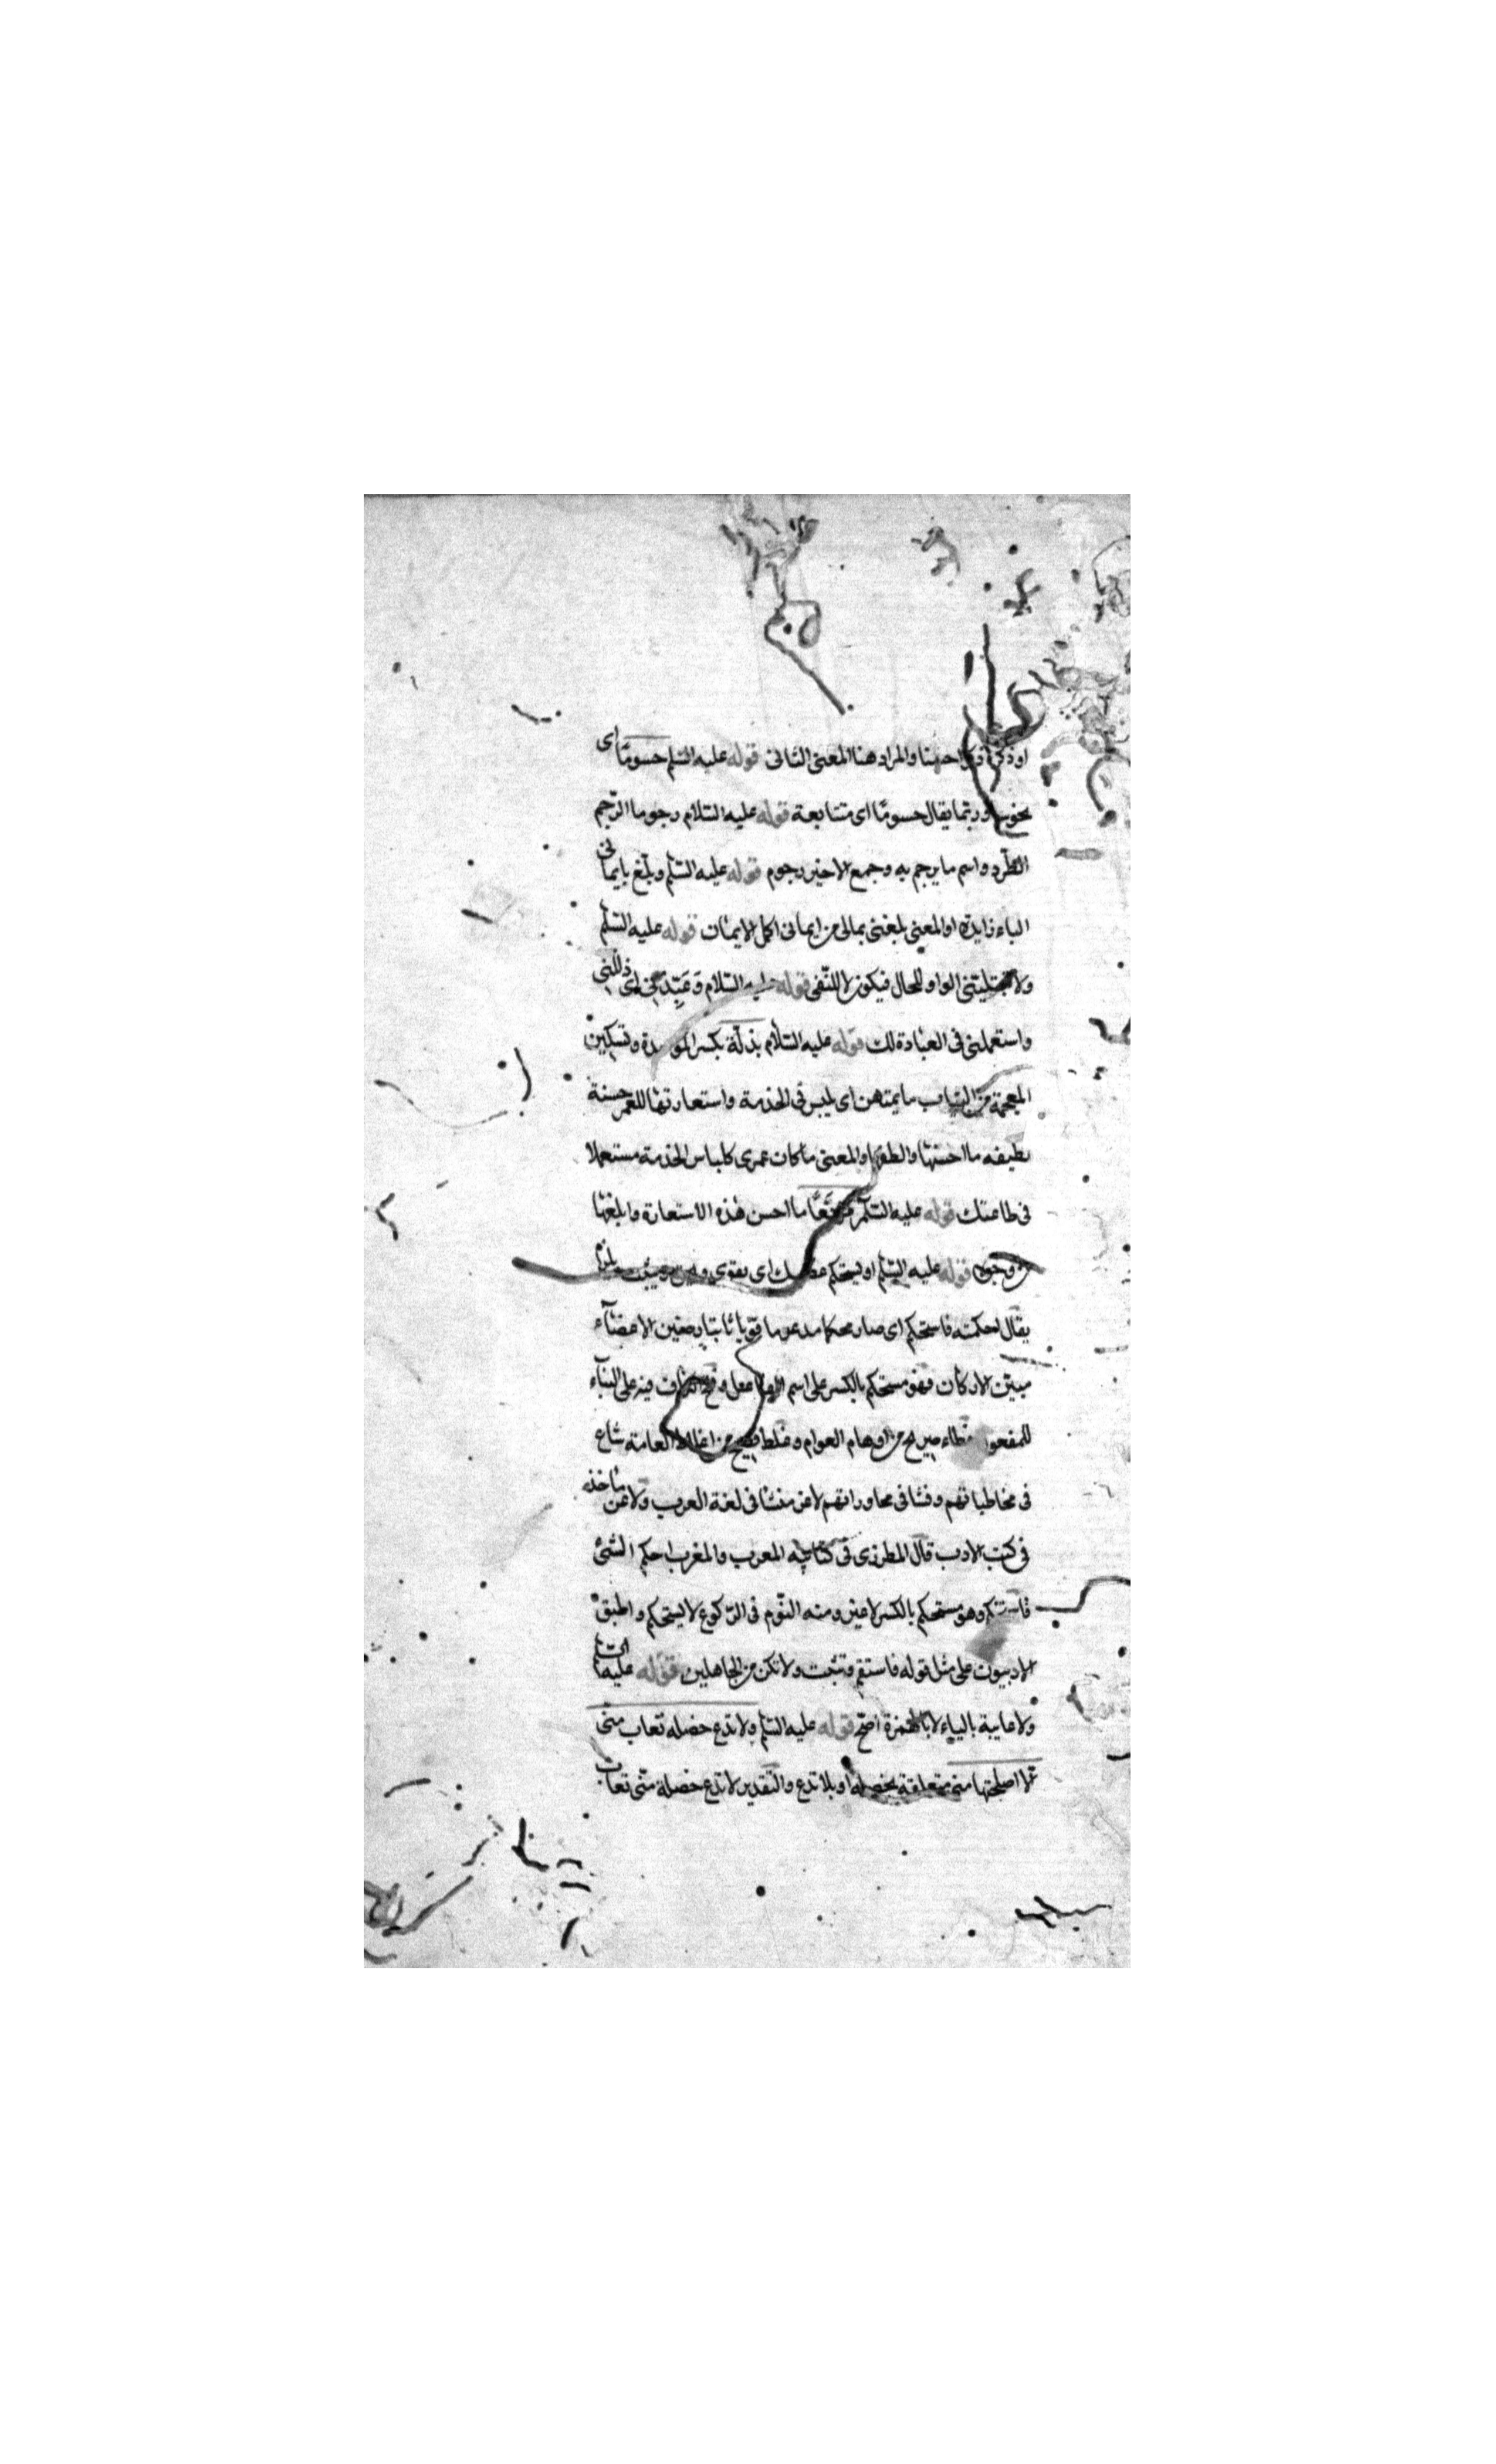 او ذكره ذكرا حسنا والمراد هنا المعنى الثانى قوله عليه السلم حسومًا اى
نحوسا وربما يقال حسومًا اى متتابعة قوله عليه السلام رجوما الرّجم
الطّرد واسم ما يرجم به وجمع الاخير رجوم قوله عليه السّلم وبلّغ بايمانى
الباء زايدة او المعنى بلغنى بمالى من ايمانى اكمل الايمان قوله عليه السّلم
ولا تبتلينى الواو للحال فيكون لا للنّفى قوله عليه السّلام وَعَبِّدْنى اى ذللنى
واستعملنى فى العبادة لك قوله عليه السّلام بذلة بكسر الموحدة وتسكين
المعجمة من الثياب ما يمتهن اى يلبس فى الخدمة واستعارتها للعمر حسنة
لطيفه ما احسنها والطفها والمعنى ما كان عمرى كلباس الخدمة مستعملا
فى طاعتك قوله عليه السّلم مرتعًا ما احسن هذه الاستعارة وابلغها
من وجوه قوله عليه السّلم او يستحكم غضبك اى يقوى
يقال احكمته فاستحكم اى صار محكما مدعوما قويا ثابتا رصين الاعضآء
مبين الاركان فهو مستحكم بالكسر على اسم الفاعل وفتح الكاف فيه على البنآء
للمفعول خطاء صريح من اوهام العوام وغلط قبيح من اغلاط العامة شاع
فى مخاطباتهم وفشا فى محاوراتهم لا عن منشا فى لغة العرب ولا عن ماخذه
فى كتب الادب قال المطرزى فى كتابيه المعرب والمغرب احكم الشئ
فاستحكم وهو مستحكم بالكسر لا غير ومنه النّوم فى الرّكوع لا يستحكم واطبق
الادبيون على مثل قوله فاستقم وتثبت ولا تكن من الجاهلين قوله عليه السلم
ولا عايبة بالياء لا بالهمزة اصح قوله عليه السّلم ولا تدع خصله تعاب منّى
الا اصلحتها منى متعلقة بخصله او بلا تدع والتقدير لا تدع خصلة منّى تعاب